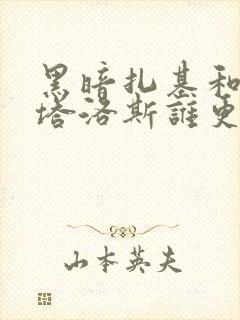 黑暗扎基和
塔洛斯誰更
山本英夫